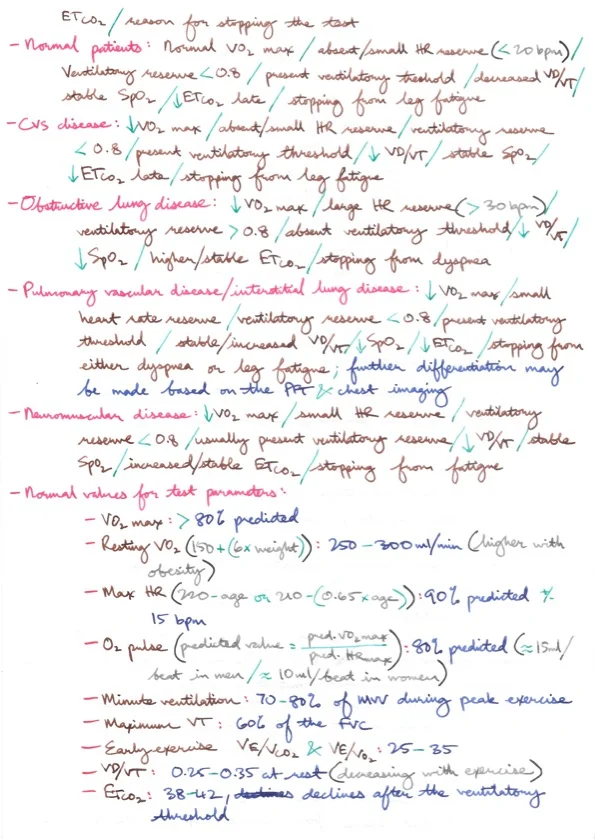 ETCO₂ / reason for stopping the test
- Normal patients: Normal VO₂ max / absent/small HR reserve (< 20 bpm) /
Ventilatory reserve < 0.8 / present ventilatory treshold / decreased VD/VT /
stable SpO₂ / ↓ETCO₂ late / stopping from leg fatigue
- CVS disease: ↓VO₂ max / absent/small HR reserve / ventilatory reserve
< 0.8 / present ventilatory threshold / ↓ VD/VT / stable SpO₂ /
↓ETCO₂ late / stopping from leg fatigue
- Obstructive lung disease: ↓ VO₂ max / large HR reserve (> 30 bpm) /
ventilatory reserve > 0.8 / absent ventilatory threshold / ↓ VD/VT /
↓SpO₂ / higher/stable ETCO₂ / stopping from dyspnea
- Pulmonary vascular disease/interstitial lung disease: ↓ VO₂ max / small
heart rate reserve / ventilatory reserve < 0.8 / present ventilatory
threshold / stable/increased VD/VT / ↓SpO₂ / ↓ETCO₂ / stopping from
either dyspnea or leg fatigue; further differentiation may
be made based on the PFT & chest imaging
- Neuromuscular disease: ↓VO₂ max / small HR reserve / ventilatory
reserve < 0.8 / usually present ventilatory reserve / ↓ VD/VT / stable
SpO₂ / increased/stable ETCO₂ / stopping from fatigue
- Normal values for test parameters:
- VO₂ max: > 80% predicted
- Resting VO₂ (150 + (6 x weight)): 250 – 300 ml/min (higher with
obesity)
- Max HR (220 - age or 210 - (0.65 x age)): 90% predicted +/-
15 bpm
- O₂ pulse (predicted value = pred. VO₂ max / pred. HR max): 80% predicted (≈ 15 ml/
beat in men / ≈ 10 ml/beat in women)
- Minute ventilation: 70 – 80% of MVV during peak exercise
- Maximum VT: 60% of the FVC
- Early exercise VE/VCO₂ & VE/VO₂: 25 – 35
- VD/VT: 0.25 – 0.35 at rest (decreasing with exercise)
- ETCO₂: 38-42, declines declines after the ventilatory
threshold